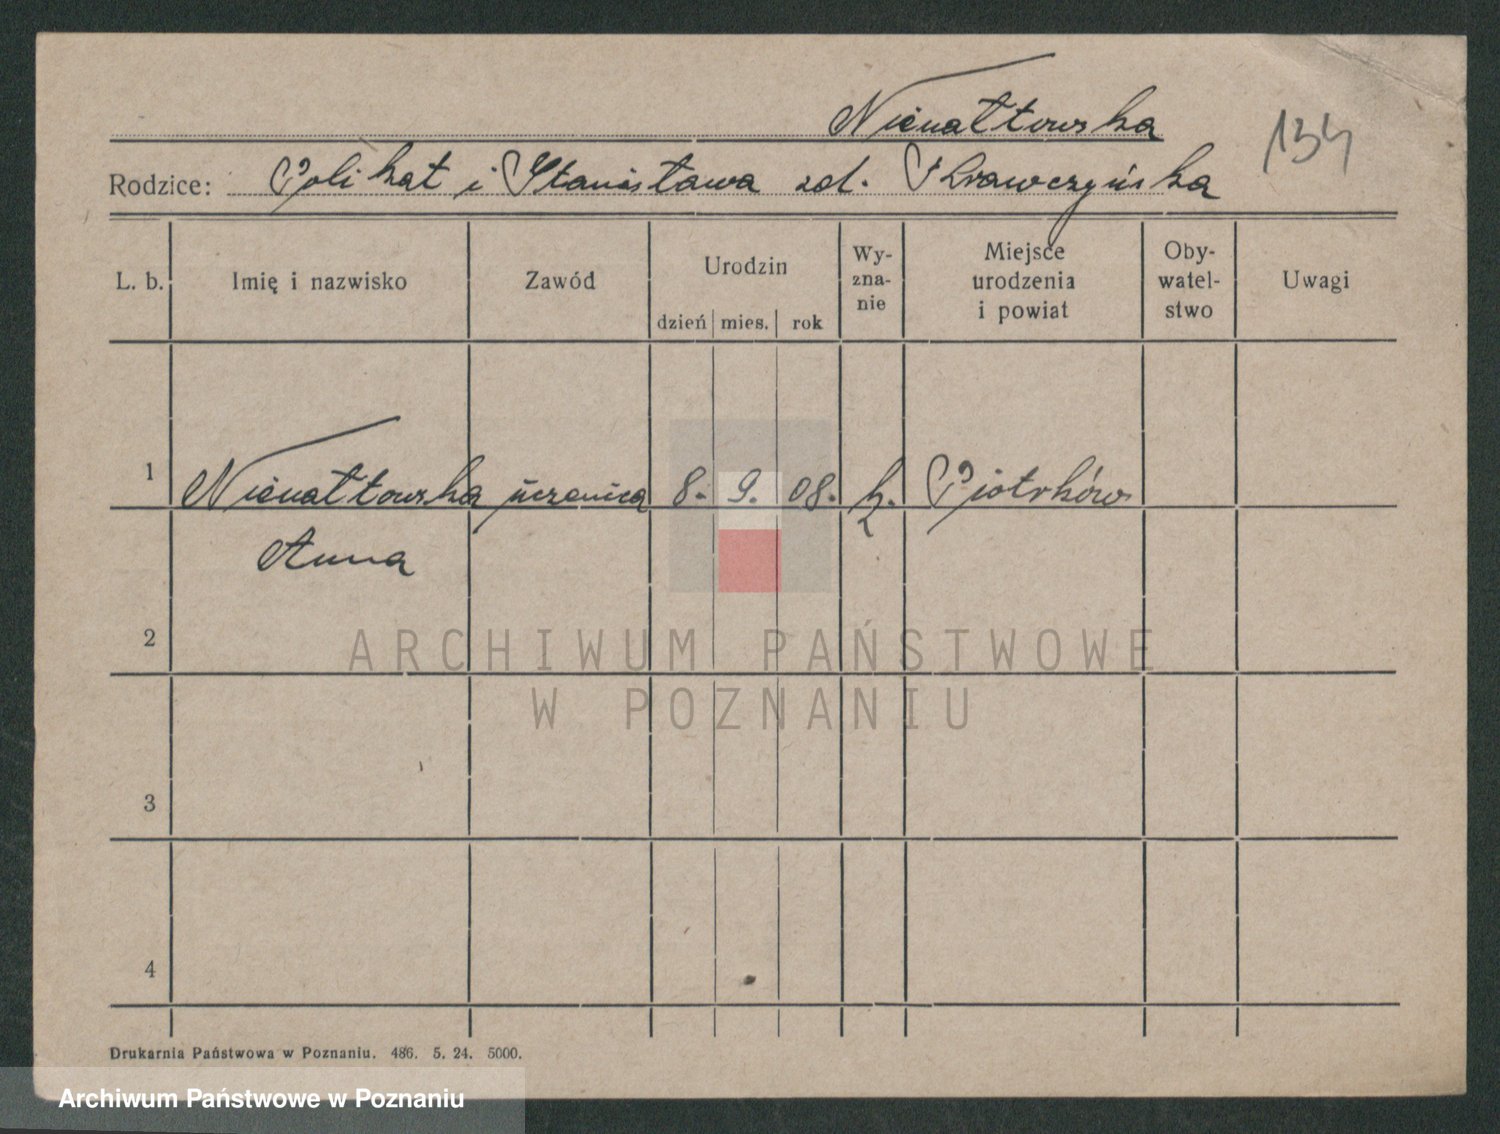 Nienałtowska
134
Rodzice: Polikat i Stanisława zd. Skrawczyńska
L. b. Imię i nazwisko Zawód Urodzin dzień mies. rok Wy-zna-nie Miejsce urodzenia i powiat Oby-watel-stwo Uwagi
1 Nienałtowska uczenica 8. 9. 08. k. Piotrków
Anna
2
ARCHIWUM PAŃSTWOWE
W POZNANIU
3
4
Drukarnia Państwowa w Poznaniu. 486. 5. 24. 5000.
Archiwum Państwowe w Poznaniu